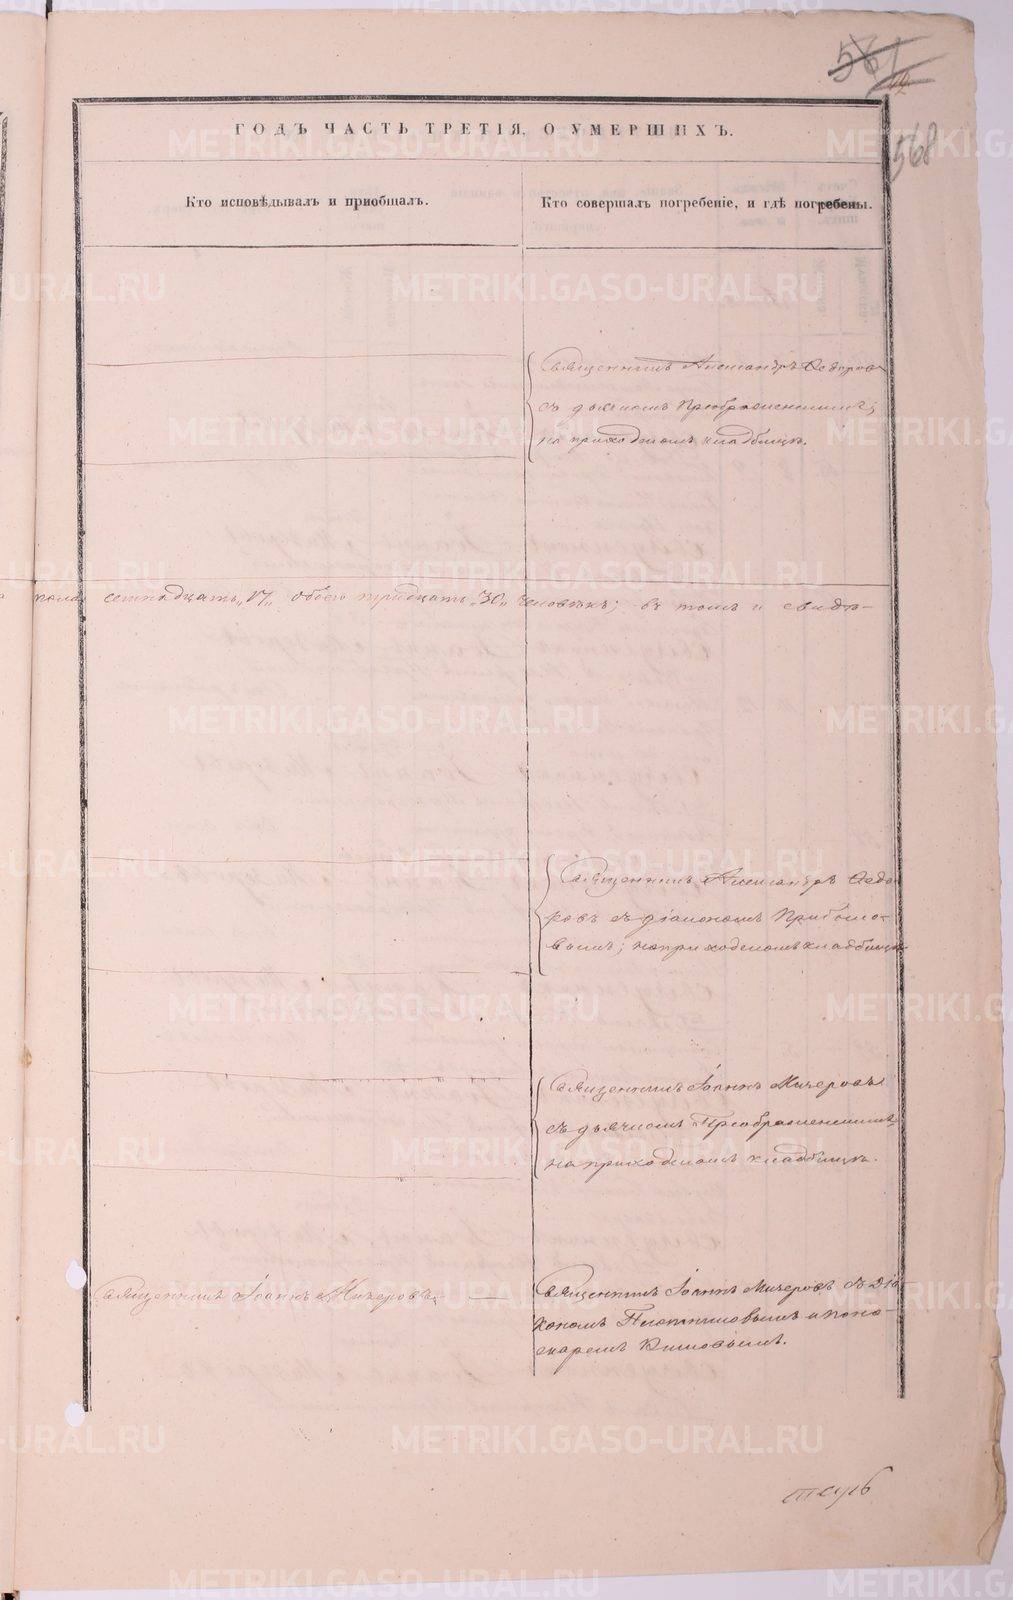 561
568
ГОДЪ ЧАСТЬ ТРЕТІЯ, О УМЕРШИХЪ.
Кто исповѣдывалъ и пріобщалъ.
Кто совершалъ погребеніе, и гдѣ погребены.
Священникъ Александръ Ѳедоровъ
съ дьячкомъ Преображенскимъ;
на приходскомъ кладбищѣ.
пола семнадцать „17„ обоего тридцать „30„ человѣкъ; въ томъ и свидѣ-
Священникъ Александръ Ѳедо-
ровъ съ діакономъ
на приходскомъ кладбищѣ
Священникъ Іоаннъ Мичеровъ
съ дьячкомъ Преображенскимъ
на приходскомъ кладбищѣ.
Священникъ Іоаннъ Мичеровъ
Священникъ Іоаннъ Мичеровъ съ діа-
кономъ и поно-
маремъ
METRIKI.GASO-URAL.RU